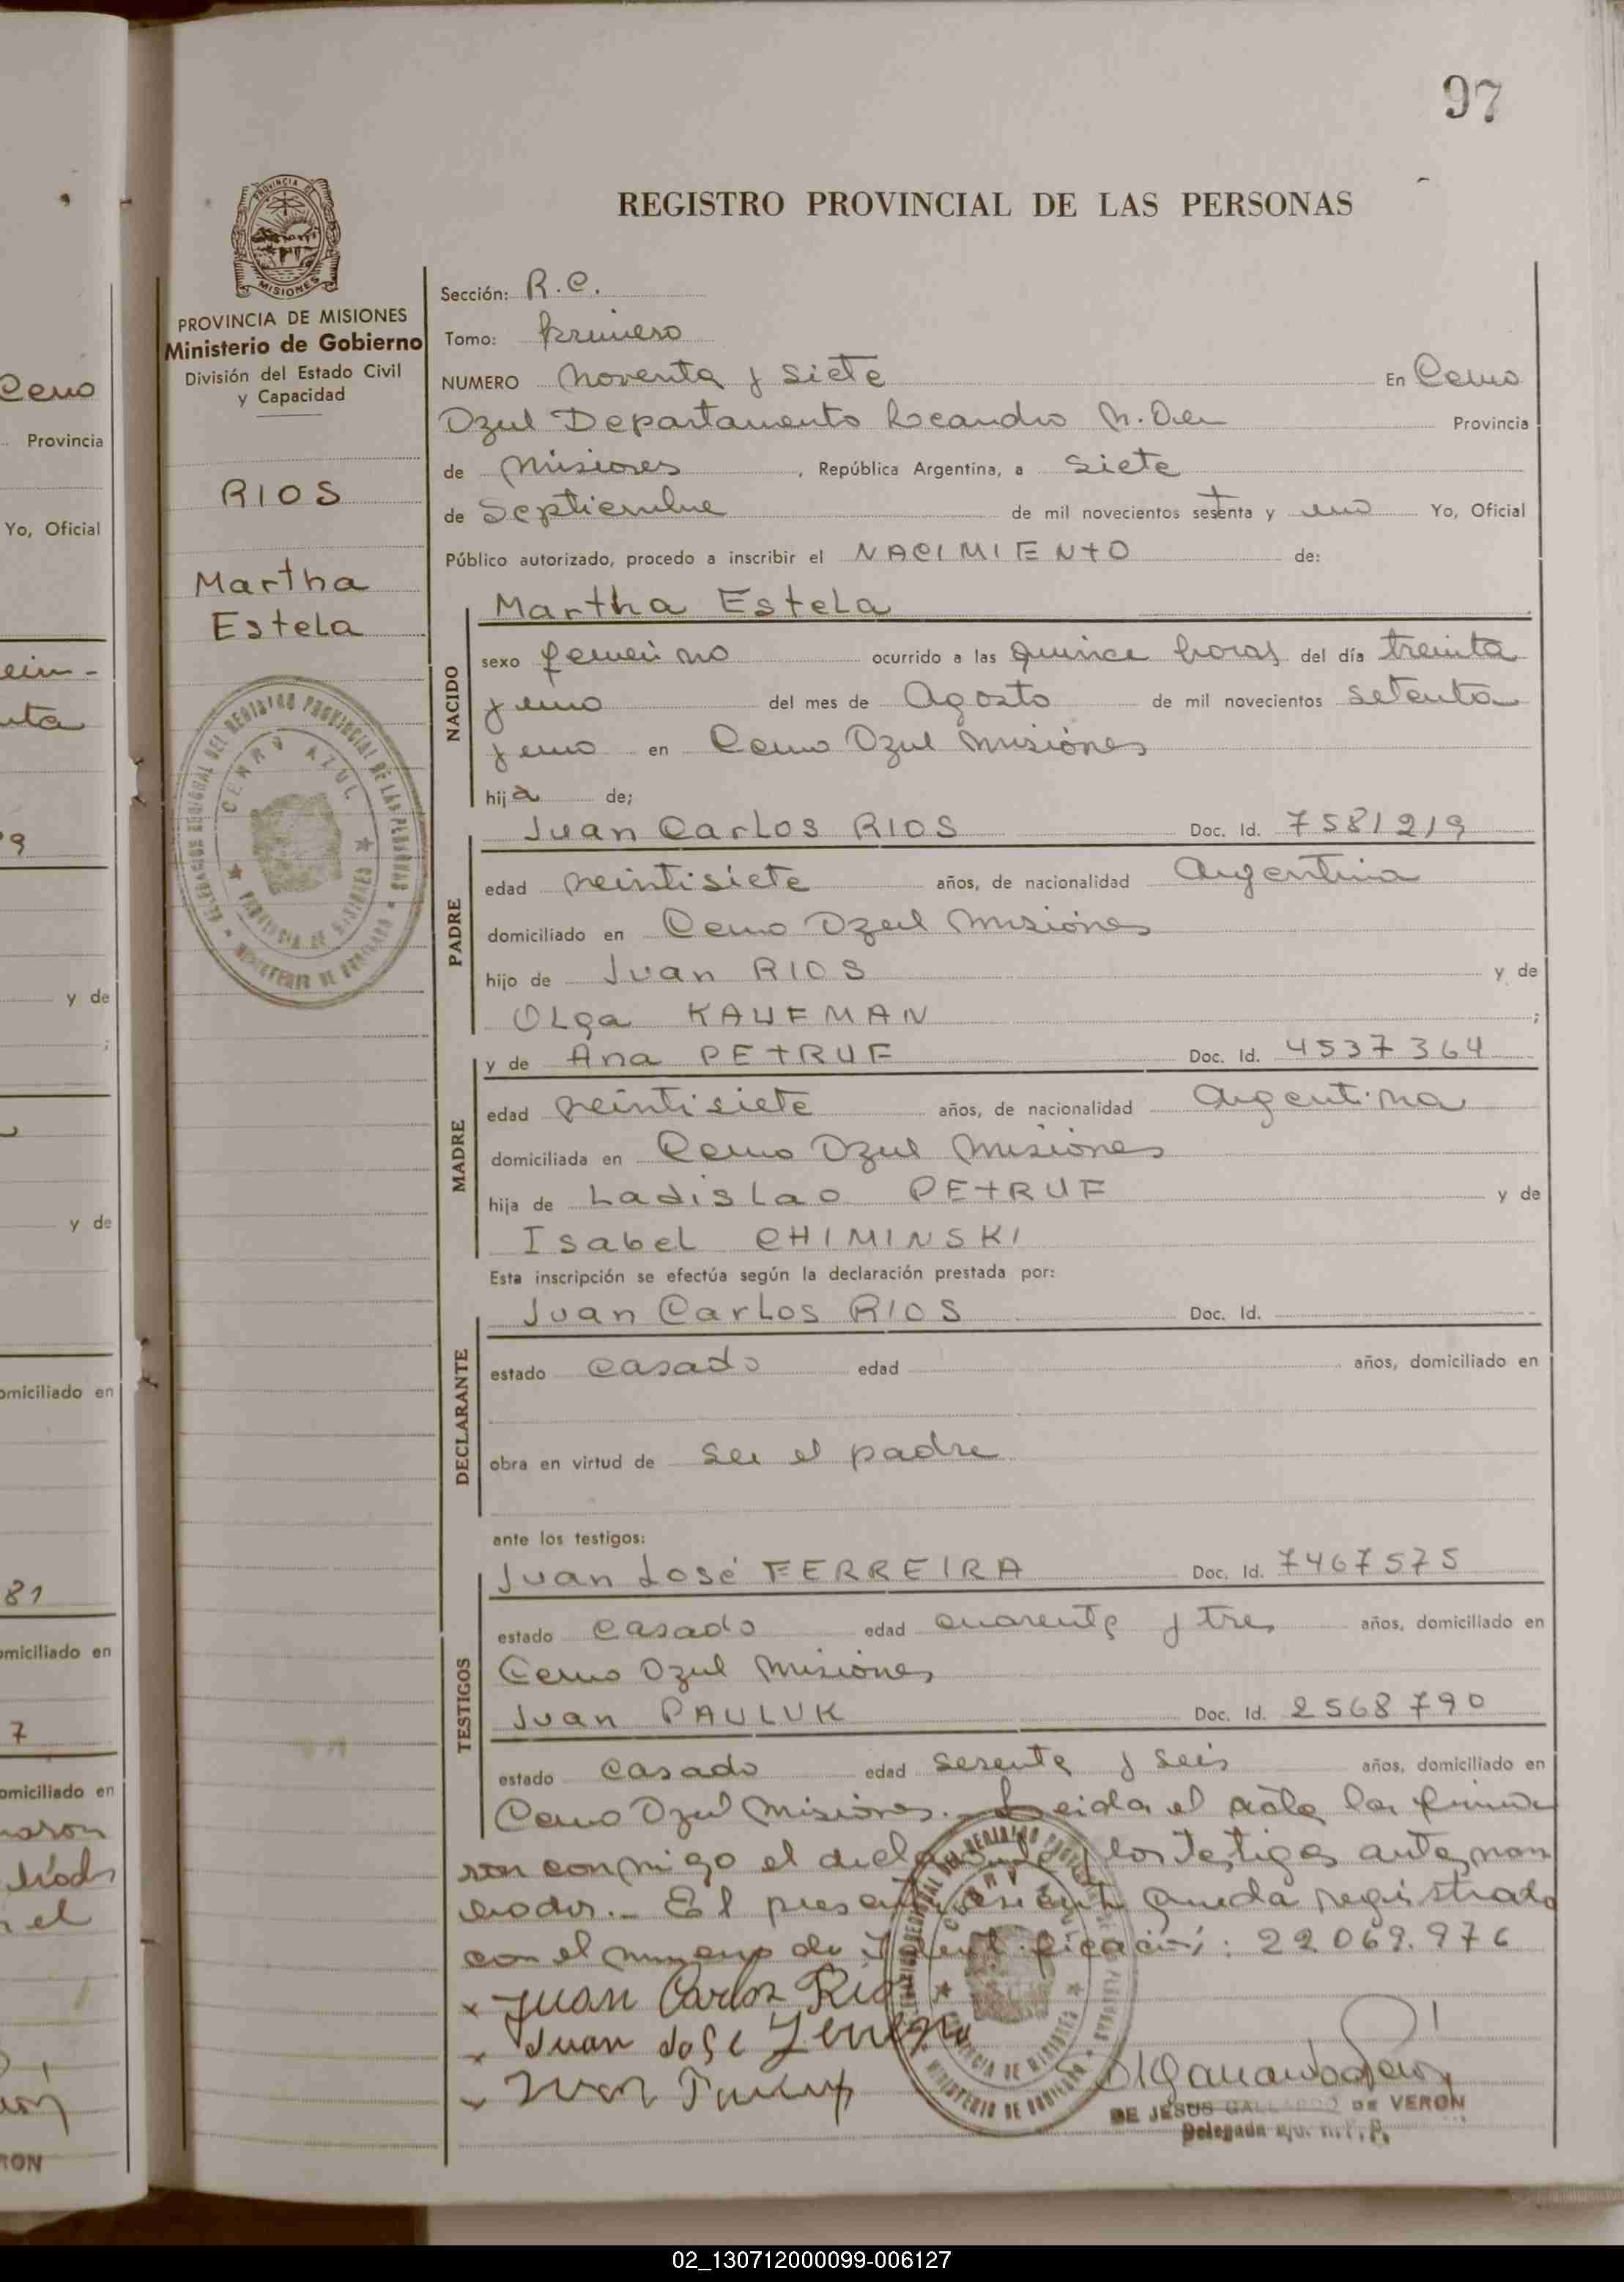 97
REGISTRO PROVINCIAL DE LAS PERSONAS
PROVINCIA DE
MISIONES
PROVINCIA DE MISIONES
Ministerio de Gobierno
División del Estado Civil
y Capacidad
RIOS
Martha
Estela
Sección: R.C.
Tomo: Primero
NUMERO Noventa y siete En Cerro
Azul Departamento Leandro N. Alem Provincia
de Misiones, República Argentina, a siete
de Septiembre de mil novecientos setenta y uno Yo, Oficial
Público autorizado, procedo a inscribir el NACIMIENTO de:
NACIDO
Martha Estela
sexo femenino ocurrido a las quince horas del día treinta
y uno del mes de Agosto de mil novecientos setenta
y uno en Cerro Azul Misiones
hija de;
PADRE
Juan Carlos RIOS Doc. Id. 7581219
edad veintisiete años, de nacionalidad Argentina
domiciliado en Cerro Azul Misiones
hijo de Juan RIOS y de
Olga KAUFMAN ;
MADRE
y de Ana PETRUF Doc. Id. 4537364
edad veintisiete años, de nacionalidad Argentina
domiciliada en Cerro Azul Misiones
hija de Ladislao PETRUF y de
Isabel CHIMINSKI
Esta inscripción se efectúa según la declaración prestada por:
DECLARANTE
Juan Carlos RIOS Doc. Id.
estado casado edad años, domiciliado en
obra en virtud de ser el padre
ante los testigos:
TESTIGOS
Juan José FERREIRA Doc. Id. 7467575
estado casado edad cuarenta y tres años, domiciliado en
Cerro Azul Misiones
Juan PAULUK Doc. Id. 2568790
estado casado edad sesenta y seis años, domiciliado en
Cerro Azul Misiones.- Leida el acta la firma
ron conmigo el declarante y los testigos antes nom
brados.- El presente asiento queda registrado
con el numero de Identificación: 22.069.976
Juan Carlos Rios
Juan José Ferreira
Juan Pauluk
DE JESUS GALLARDO DE VERON
Delegada
DELEGACION REGIONAL DEL REGISTRO PROVINCIAL DE LAS PERSONAS
CERRO AZUL
PROVINCIA DE MISIONES
MINISTERIO DE GOBIERNO
Cerro
Provincia
Yo, Oficial
9
y de
;
y de
omiciliado en
81
omiciliado en
7
omiciliado en
n el
RON
02_130712000099-006127